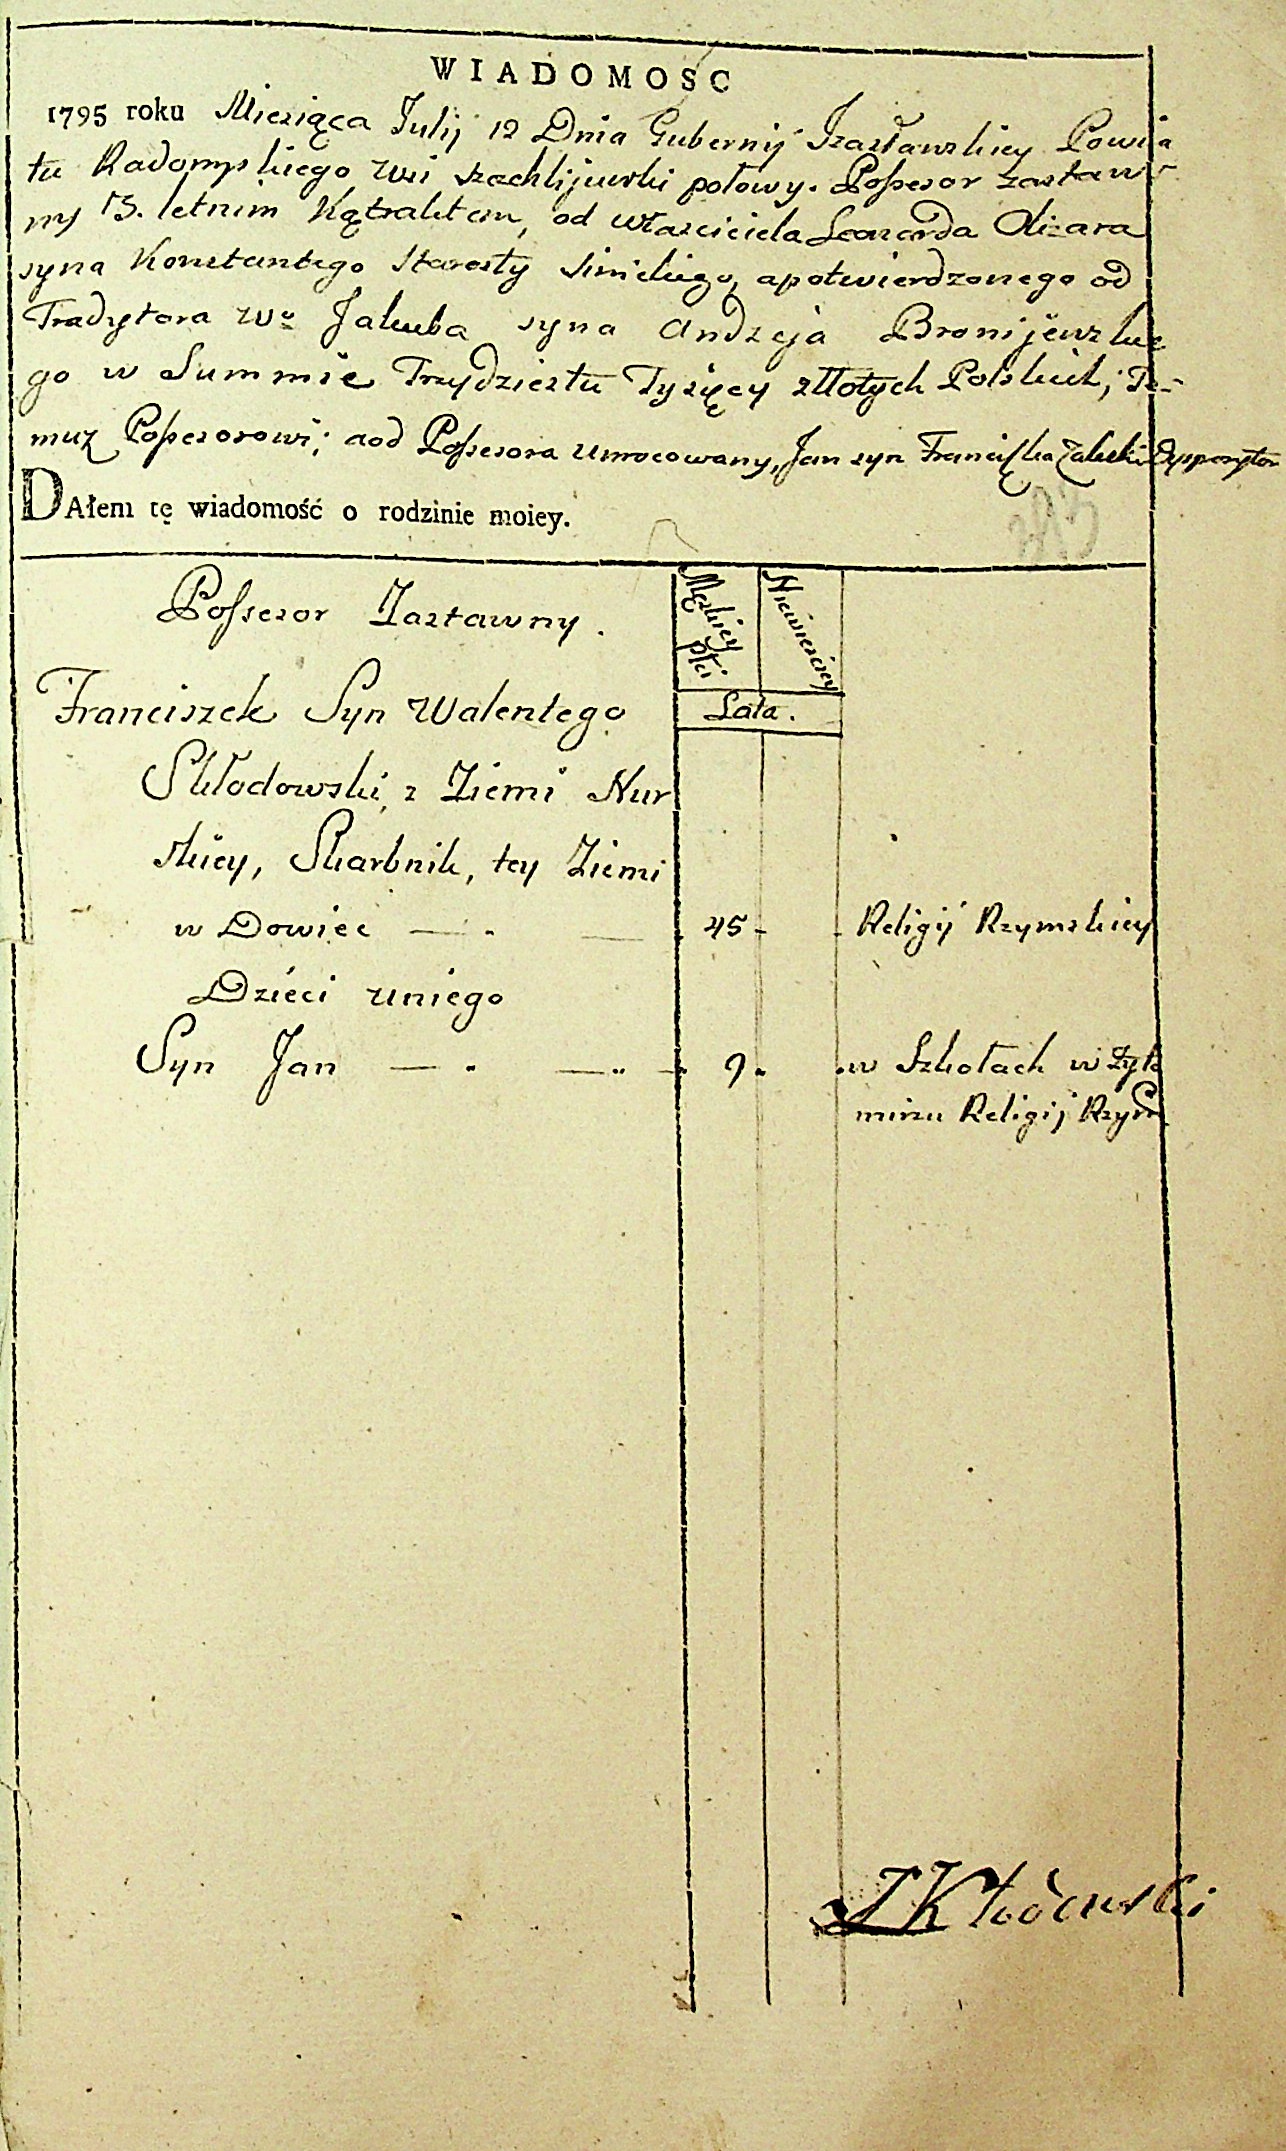 WIADOMOSC
1795 roku Miesiąca Julij 12 Dnia Gubernij Izasławskiey Powia
tu Radomyslkiego Wsi szachlijuwski połowy. Possesor zastaw
ny 13. letnim Kątraktem, od własciciela Leonarda Olizara
syna Konstantego Starosty Sinickiego, apotwierdzonego od
Tradytora Wo Jakuba syna Andzeja Bronijewskie
go w Summie Trzydziestu Tysięcy złłotych Polskich; Te-
muż Possesorowi; aod Possesora umocowany, Jan syn Franciszka Zaleski Dysponytor
DAłem tę wiadomość o rodzinie moiey.
Possesor Zastawny.
Męskiey płci
Niewiesciey
Lata.
Franciszek Syn Walentego
Skłodowski, z Ziemi Nur
skiey, Skarbnik, tey Ziemi
w Dowiec — 45 - Religij Rzymskiey
Dzieci uniego
Syn Jan — 9. w Szkołach w Żyto
mirzu Religij Rzym